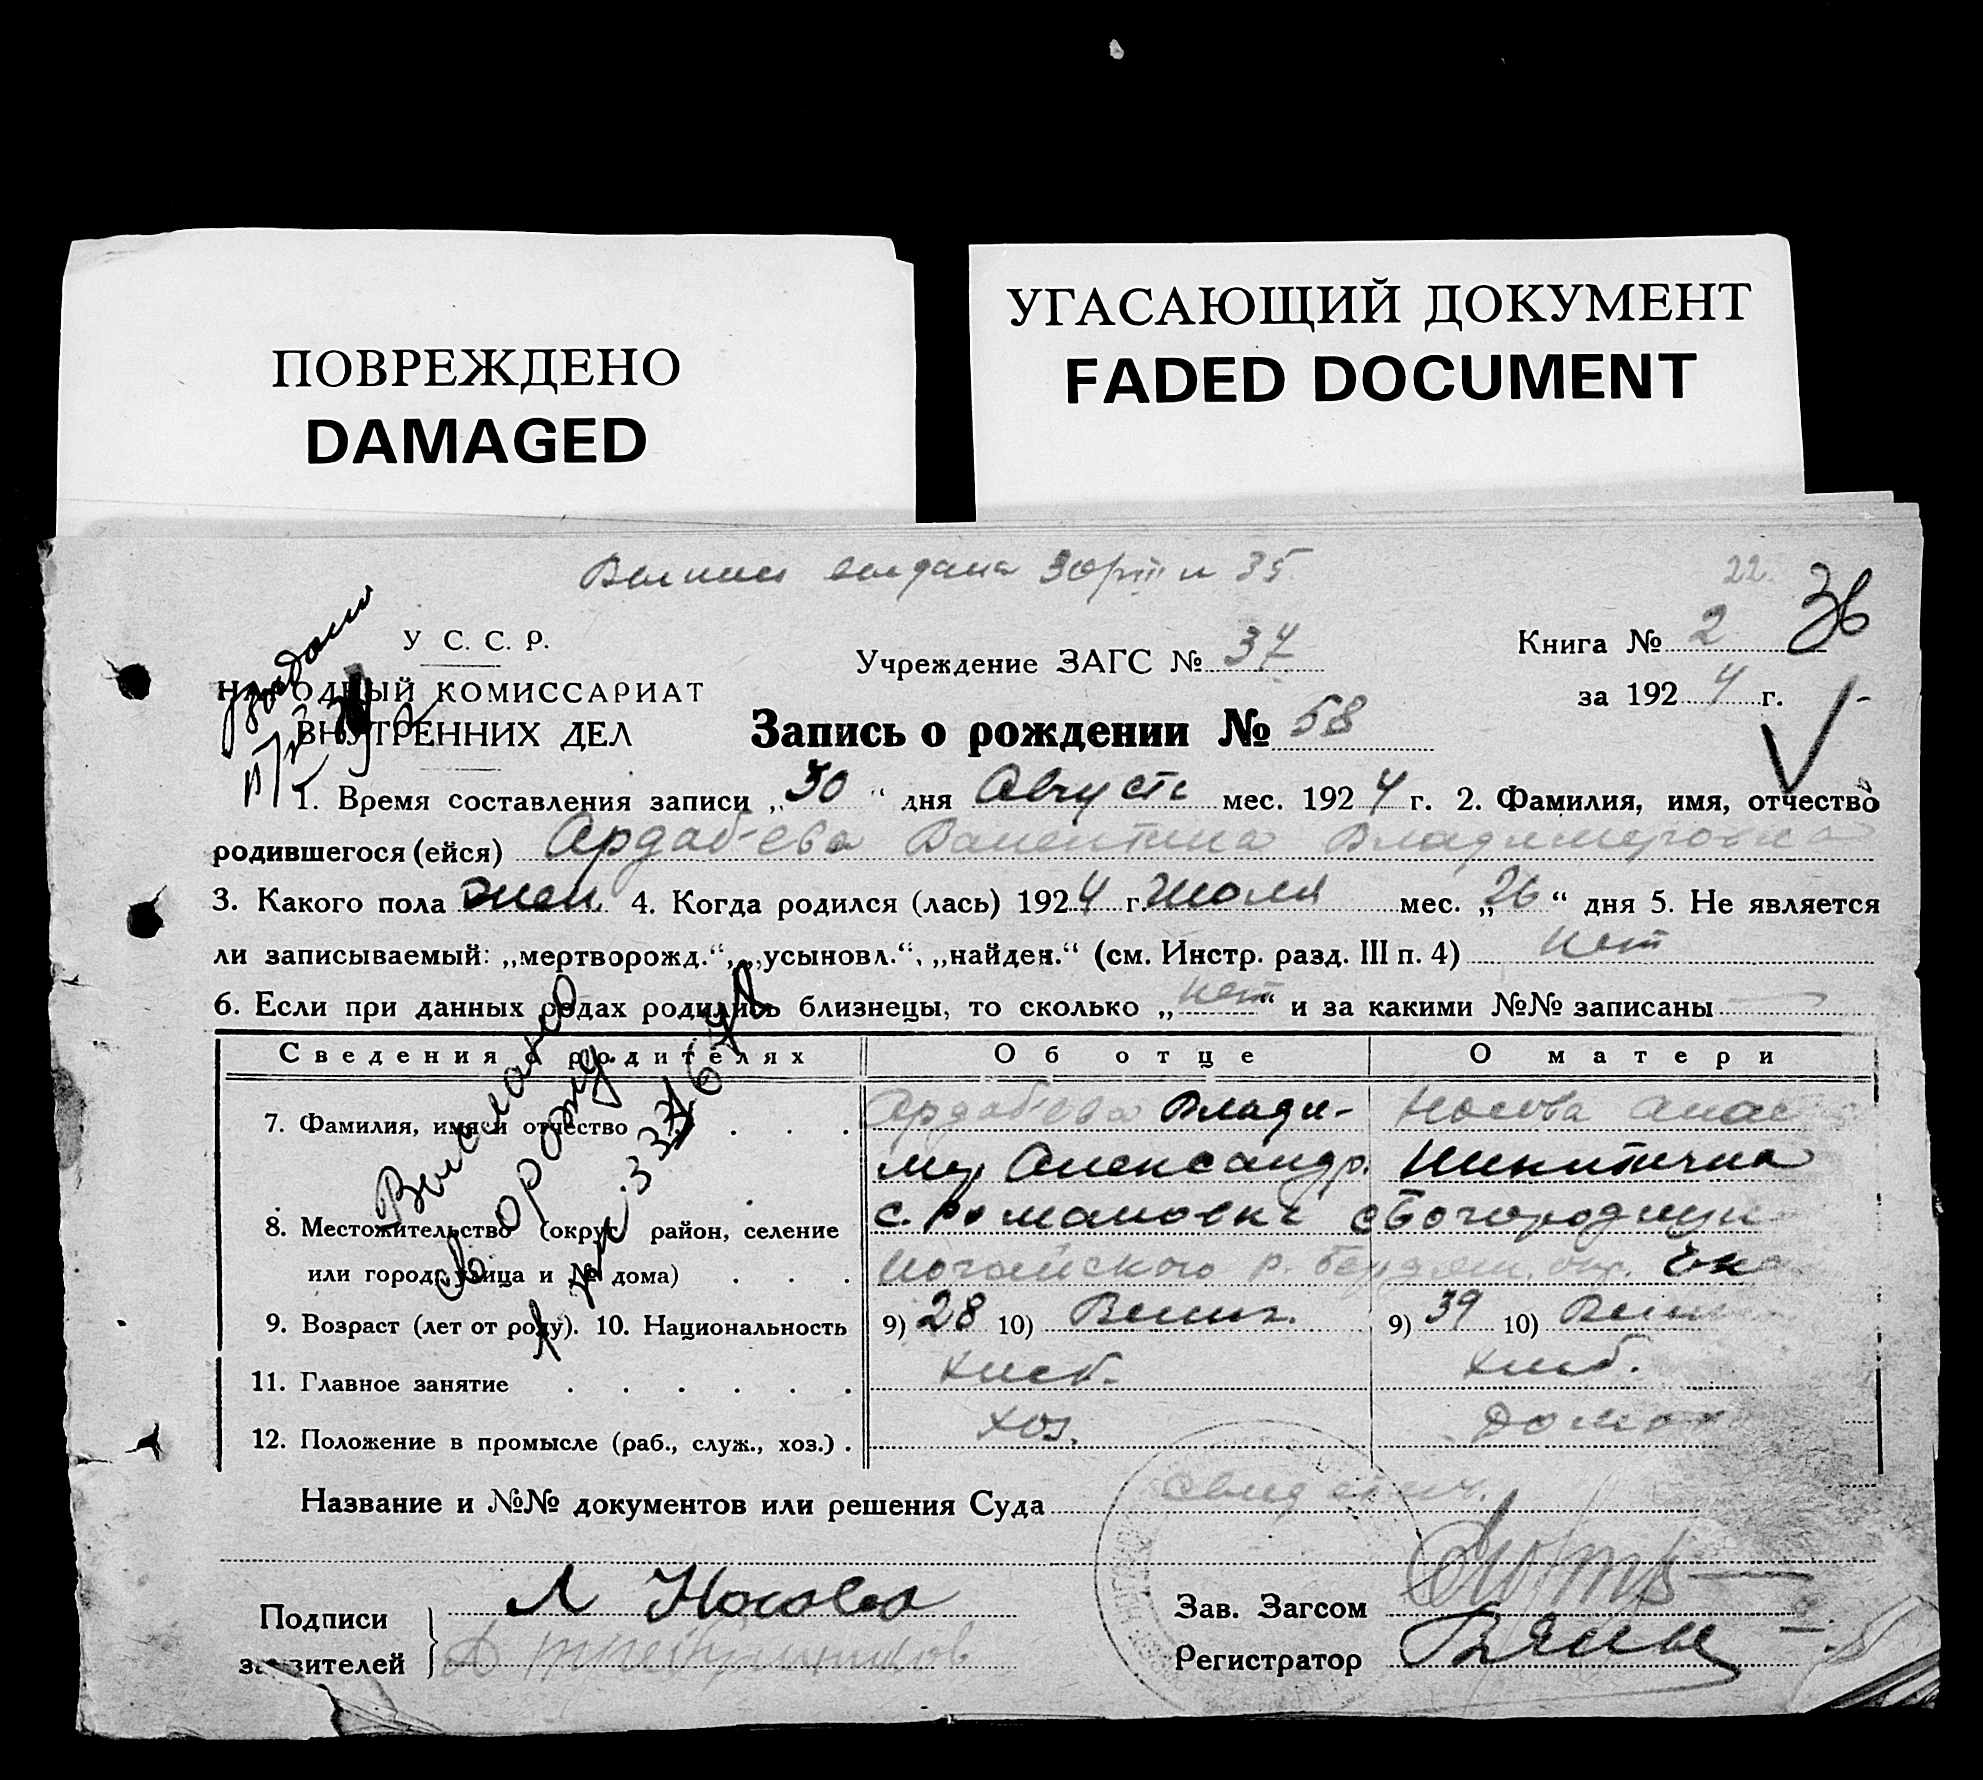 ПОВРЕЖДЕНО
DAMAGED
УГАСАЮЩИЙ ДОКУМЕНТ
FADED DOCUMENT
выдана 35
22.
36
У С. С. Р.
Учреждение ЗАГС № 37
Книга № 2
НАРОДНЫЙ КОМИССАРИАТ
за 1924 г.
ВНУТРЕННИХ ДЕЛ
Запись о рождении № 58
1. Время составления записи „30“ дня Августа мес. 1924 г. 2. Фамилия, имя, отчество
родившегося (ейся) Ардабьева Валентина Владимировна
3. Какого пола жен. 4. Когда родился (лась) 1924 г. Июля мес. „26“ дня 5. Не является
ли записываемый: „мертворожд.“, „усыновл.“, „найден.“ (см. Инстр. разд. III п. 4) нет
6. Если при данных родах родились близнецы, то сколько „нет“ и за какими №№ записаны
Сведения о родителях Об отце О матери
7. Фамилия, имя и отчество Ардабьева Влади- Носова Анас
мир Александр. Никитична
8. Местожительство (округ, район, селение с. Романовка с Богородицк
или город, улица и № дома) Ногайского р. Бердян. окр.
9. Возраст (лет от роду). 10. Национальность 9) 28 10) 9) 39 10)
11. Главное занятие хлеб. хлеб.
12. Положение в промысле (раб., служ., хоз.) хоз. Домох
Название и №№ документов или решения Суда
Подписи заявителей
Л Носова
Зав. Загсом
Регистратор